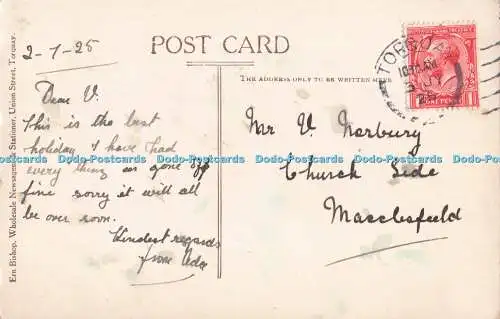 2-7-25
POST CARD
THE ADDRESS ONLY TO BE WRITTEN HERE
Ern Bishop, Wholesale Newsagent & Stationer, Union Street, Torquay.
Dear V.
This is the best
holiday I have had
every thing as gone off
fine sorry it will all
be over soon.
Kindest regards
from Ada
Mr V. Norbury
Church Side
Macclesfield
TORQUAY
ONE PENNY
Dodo-Postcards Dodo-Postcards Dodo-Postcards Dodo-Postcards Dodo-Postcards